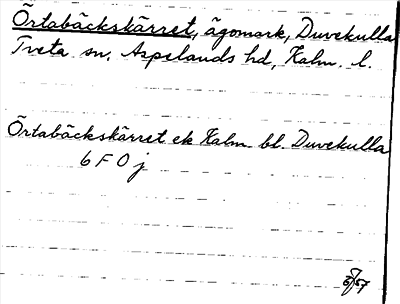 Örtabäckskärret, ägomark, Duvekulla
Tveta sn, Aspelands hd, Kalm. l.
Örtabäckskärret ek Kalm. bl. Duvekulla
6 F 0 j